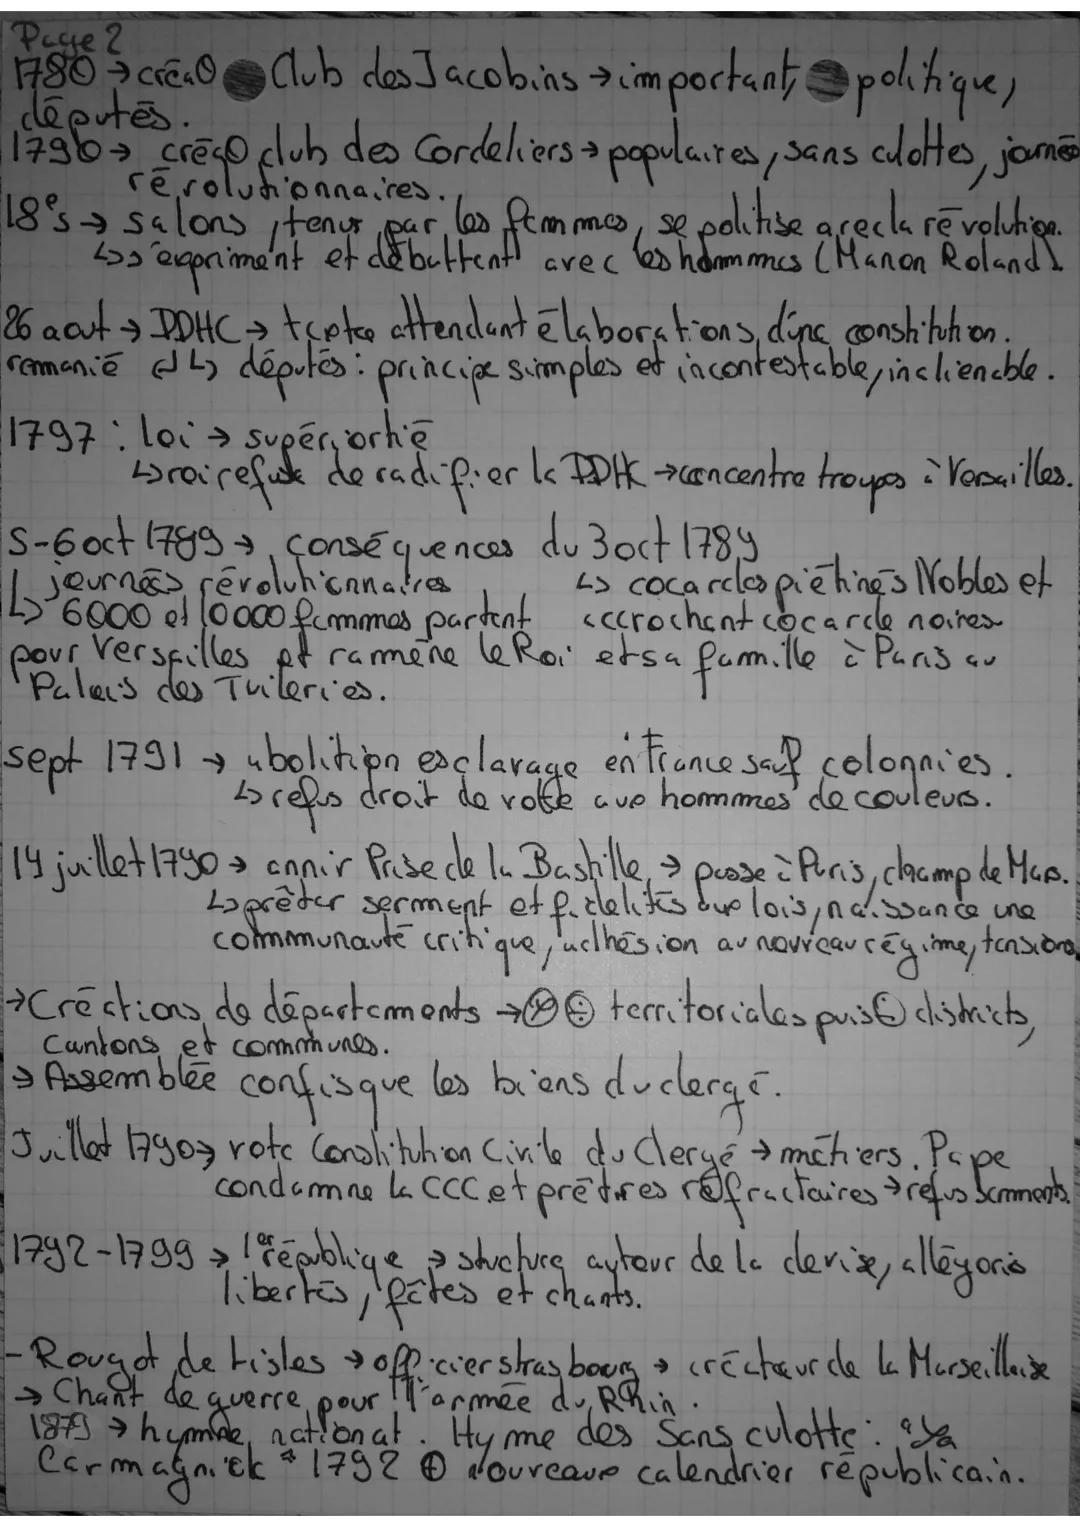 Page 2
1780 → créa° Club des Jacobins → important, politique,
députés.
1790 → créa° club des Cordeliers → populaires, sans culottes, journée
révolutionnaires.
18e s → salons, tenus par les femmes, se politise avec la révolution.
↳ s'expriment et débattent avec les hommmes (Manon Roland).
26 aout → DDHC → texte attendant élaborations d'une constitution.
remanié ↲ ↳ députés : principe simples et incontestable, inaliénable.
1797 : loi → supériortié
↳ roi refuse de radifier la DDHC → concentre troupes à Versailles.
5-6 oct 1789 → conséquences du 3 oct 1789
↳ journées révolutionnaires ↳ cocardes piétinés Nobles et
↳ 6000 et 10 000 femmes partent accrochent cocarde noires
pour Versailles et ramméne le Roi et sa famille à Paris au
Palais des Tuileries.
sept 1791 → abolition esclavage en France sauf colonnies.
↳ refus droit de vote aux hommmes de couleurs.
14 juillet 1790 → anniv Prise de la Bastille, → passe à Paris, champ de Mars.
↳ prêter serment et fidelités aux lois, naissance une
communauté critique, adhésion au nouveau régime, tensions
→ Créations de départements → territoriales puis districts,
Cantons et communes.
→ Assemblée confisque les biens du clergé.
Juillet 1790 → vote Constitution Civile du Clergé → métiers. Pape
condamne la CCC et prêtres réfractaires → refus serments.
1792-1799 → 1er république → stucture autour de la devise, allégoris
libertés, fêtes et chants.
- Rougot de Lisles → officier strasbourg → créateur de la Marseillaise
→ Chant de guerre pour l'armée du Rhin.
1879 → hymne national. Hymne des Sans culotte : "la
Carmagnick" 1792 ⊕ nouveaux calendrier républicain.